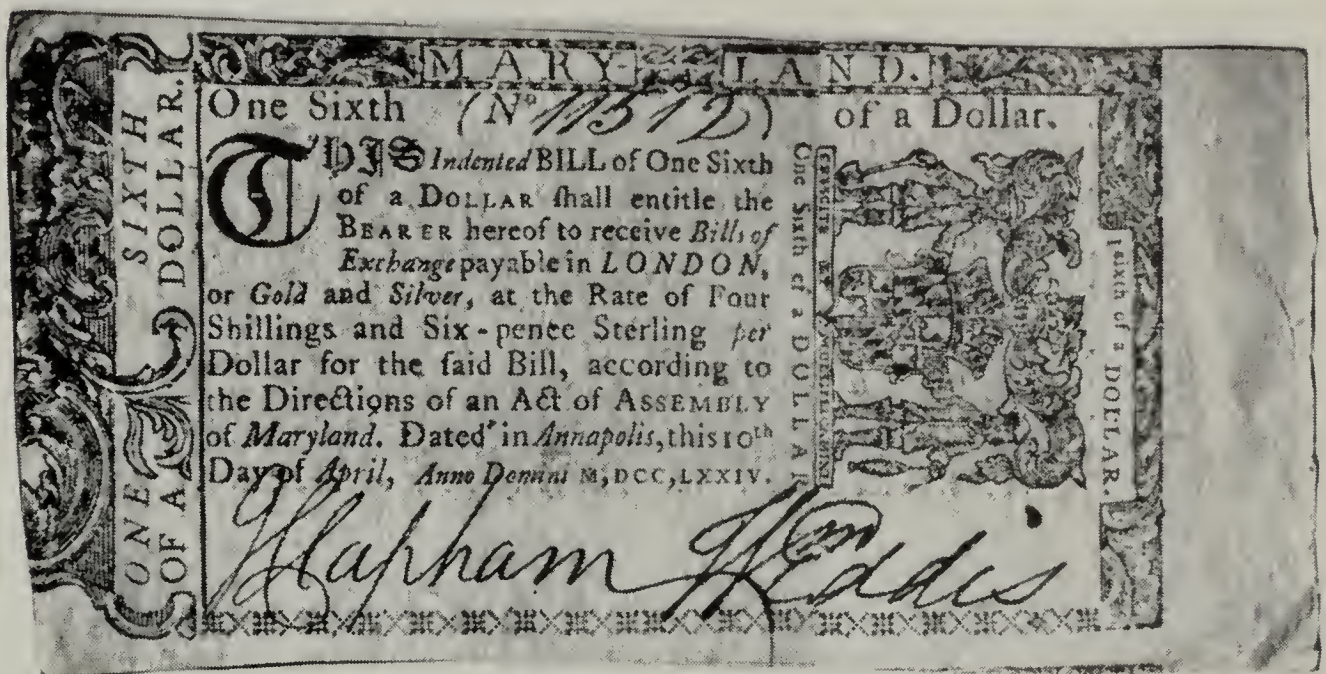 MARY-LAND.
One Sixth (No 11512) of a Dollar.
THIS Indented BILL of One Sixth
of a DOLLAR ſhall entitle the
BEARER hereof to receive Bills of
Exchange payable in LONDON,
or Gold and Silver, at the Rate of Four
Shillings and Six-pence Sterling per
Dollar for the ſaid Bill, according to
the Directions of an Act of ASSEMBLY
of Maryland. Dated in Annapolis, this 10th
Day of April, Anno Domini M,DCC,LXXIV.
JClapham Wm Eddis
ONE SIXTH
OF A DOLLAR.
One Sixth of a DOLLAR
CRESCITE ET MULTIPLICAMINI
1 sixth of a DOLLAR.